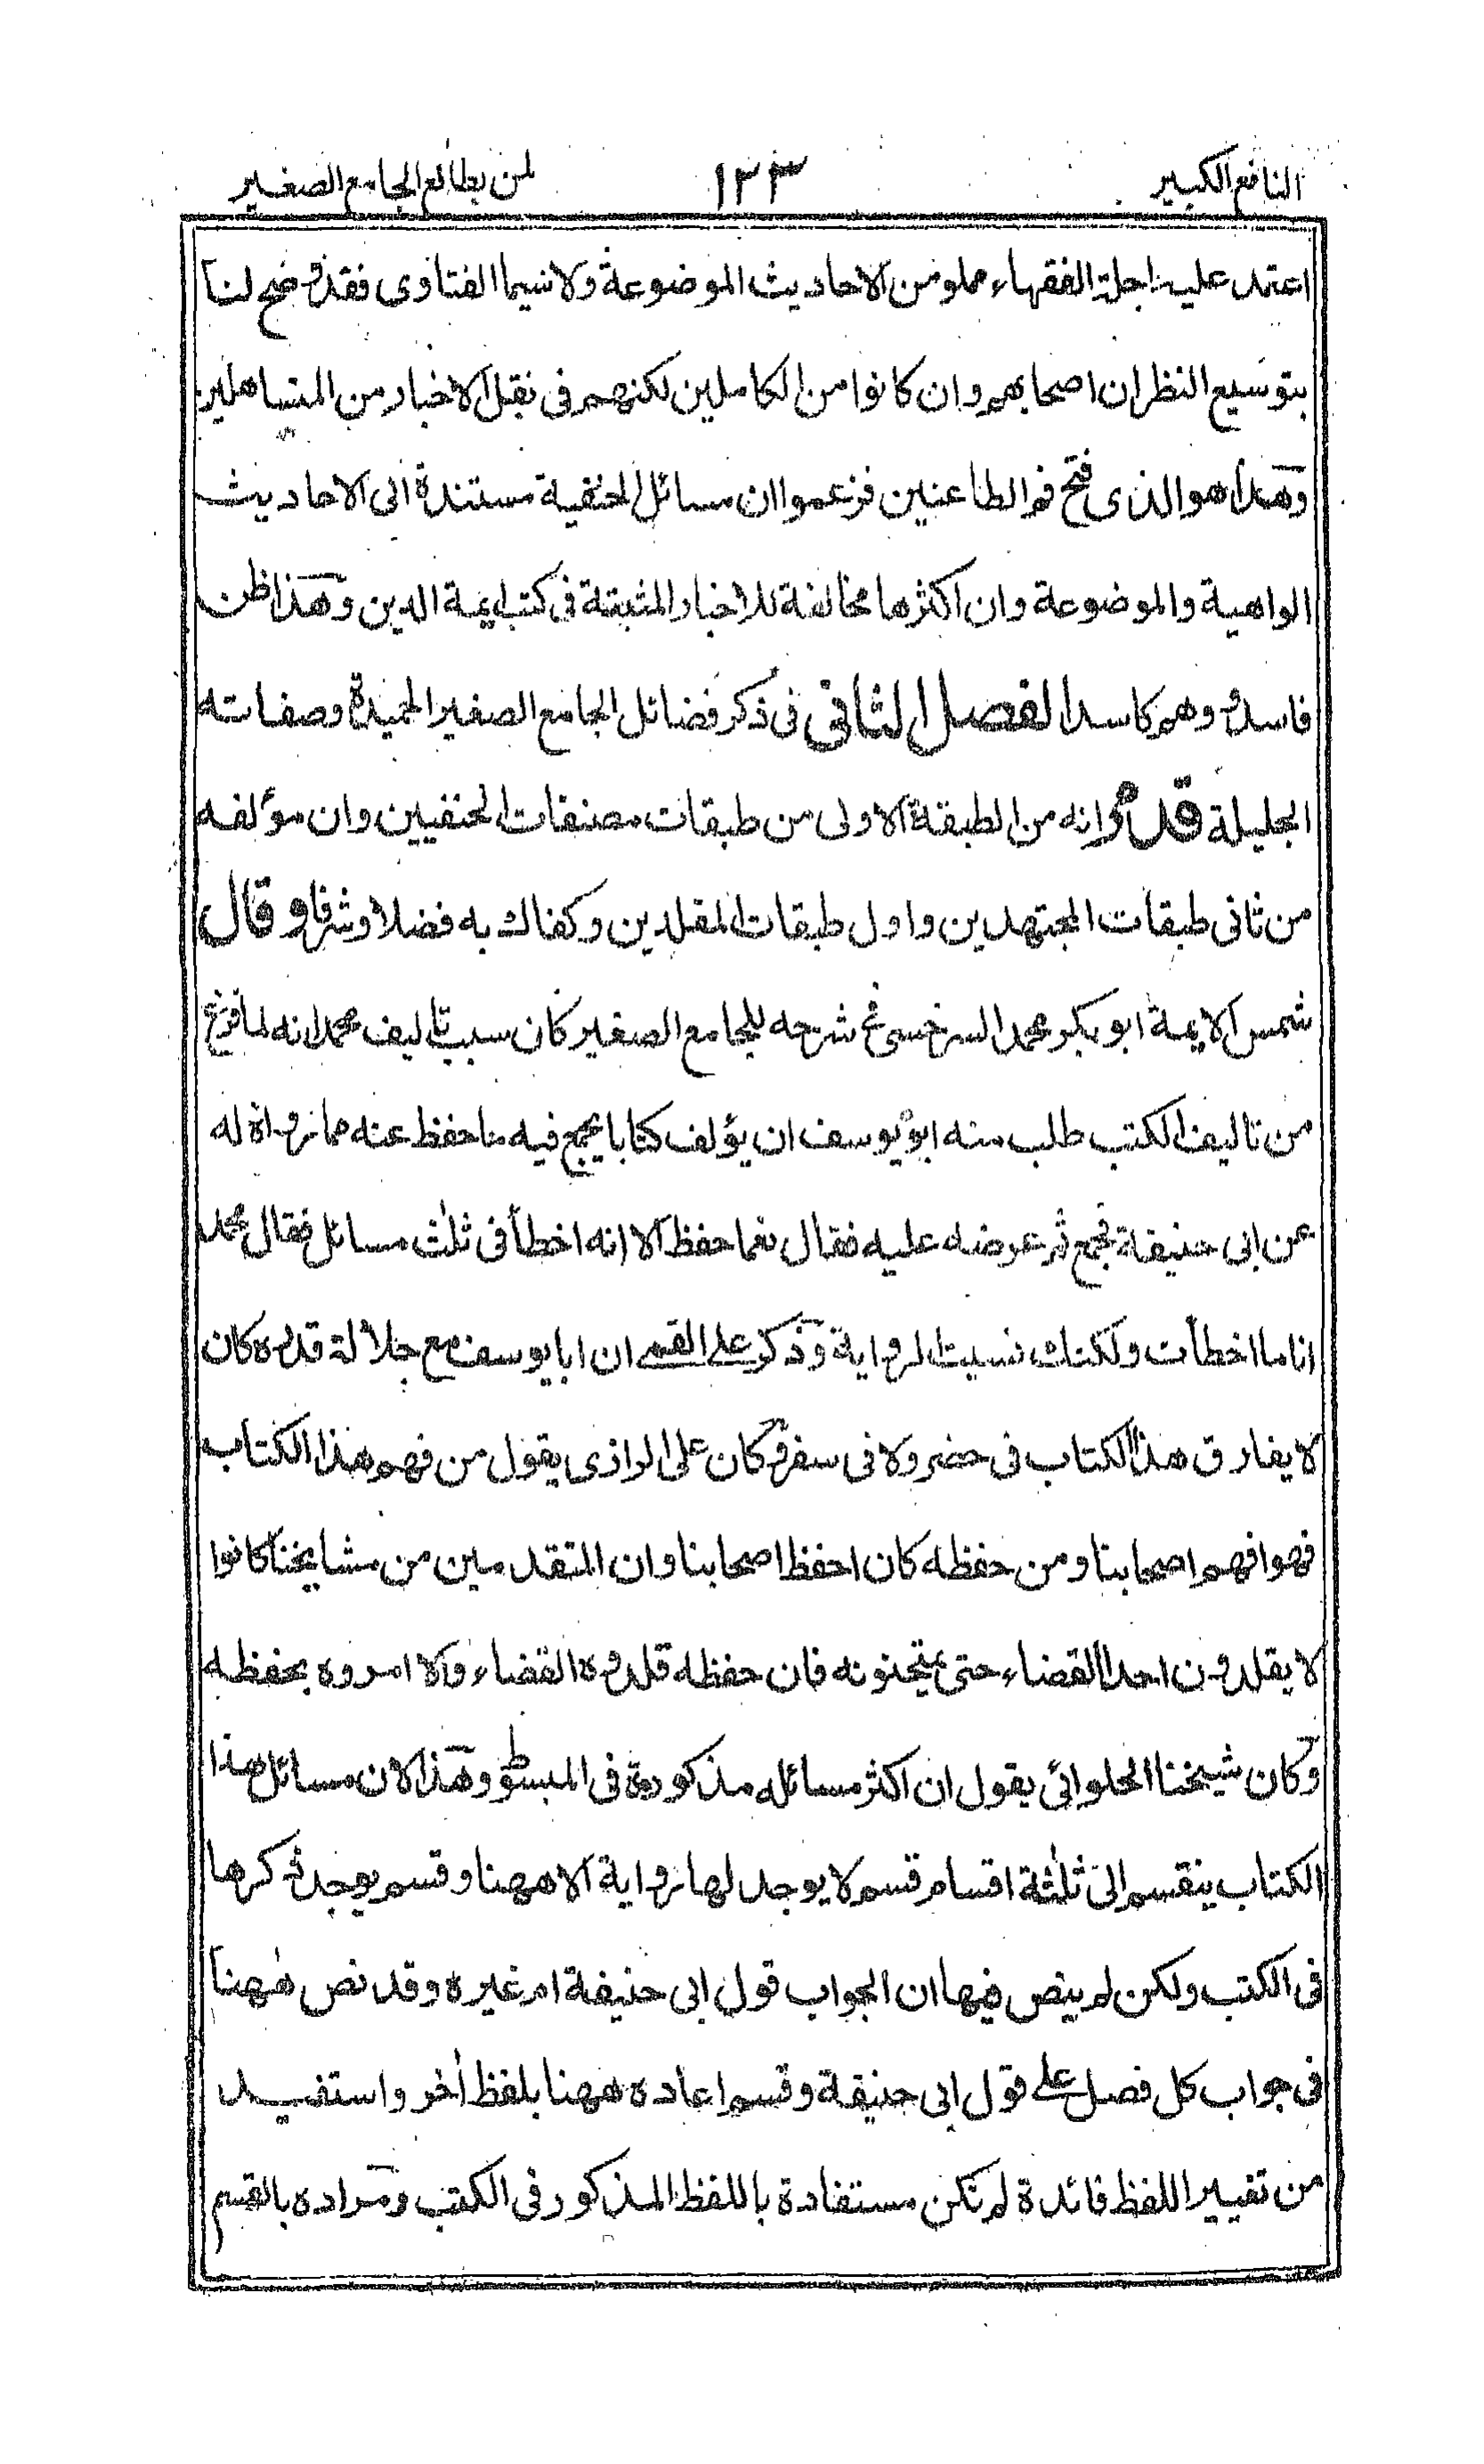 النافع الكبير ١٣٣ لمن يطالع الجامع الصغير
اعتمد عليه اجلة الفقهاء مملو من الاحاديث الموضوعة ولا سيما الفتاوى فقد وضح لنا
بتوسيع النظر ان اصحابهم وان كانوا من الكاملين لكنهم في نقل الاخبار من المتساهلين
وهذا هو الذى فتح فم الطاعنين فزعموا ان مسائل الحنفية مستندة الى الاحاديث
الواهية والموضوعة وان اكثرها مخالفة للاخبار المثبتة في كتب ايمة الدين وهذا ظن
فاسد ووهم كاسد الفصل الثاني في ذكر فضائل الجامع الصغير الحميدة وصفاته
الجليلة قد مر انه من الطبقة الاولى من طبقات مصنفات الحنفيين وان مؤلفه
من ثاني طبقات المجتهدين واول طبقات المقلدين وكفاك به فضلا وشرفا وقال
شمس الايمة ابو بكر محمد السرخسي في شرحه للجامع الصغير كان سبب تاليف محمد انه لما فرغ
من تاليف الكتب طلب منه ابو يوسف ان يؤلف كتابا يجمع فيه ما حفظ عنه مما رواه له
عن ابي حنيفة فجمع ثم عرضه عليه فقال نعما حفظ الا انه اخطأ في ثلث مسائل فقال محمد
انا ما اخطأت ولكنك نسيت الرواية وذكر على القمي ان ابا يوسف مع جلالة قدره كان
لا يفارق هذا الكتاب في حضر ولا في سفر وكان على الرازى يقول من فهم هذا الكتاب
فهو افهم اصحابنا ومن حفظه كان احفظ اصحابنا وان المتقدمين من مشايخنا كانوا
لا يقلدون احدا القضاء حتى يمتحنونه فان حفظه قلدوه القضاء والا امروه بحفظه
وكان شيخنا الحلوائي يقول ان اكثر مسائله مذكورة في المبسوط وهذا لان مسائل هذا
الكتاب ينقسم الى ثلثة اقسام قسم لا يوجد لها رواية الا ههنا وقسم يوجد ذكرها
في الكتب ولكن لم ينص فيها ان الجواب قول ابي حنيفة ام غيره وقد نص ههنا
في جواب كل فصل على قول ابي حنيفة وقسم اعاده ههنا بلفظ اخر واستفيد
من تغيير اللفظ فائدة لم تكن مستفادة باللفظ المذكور في الكتب ومراده بالقسم